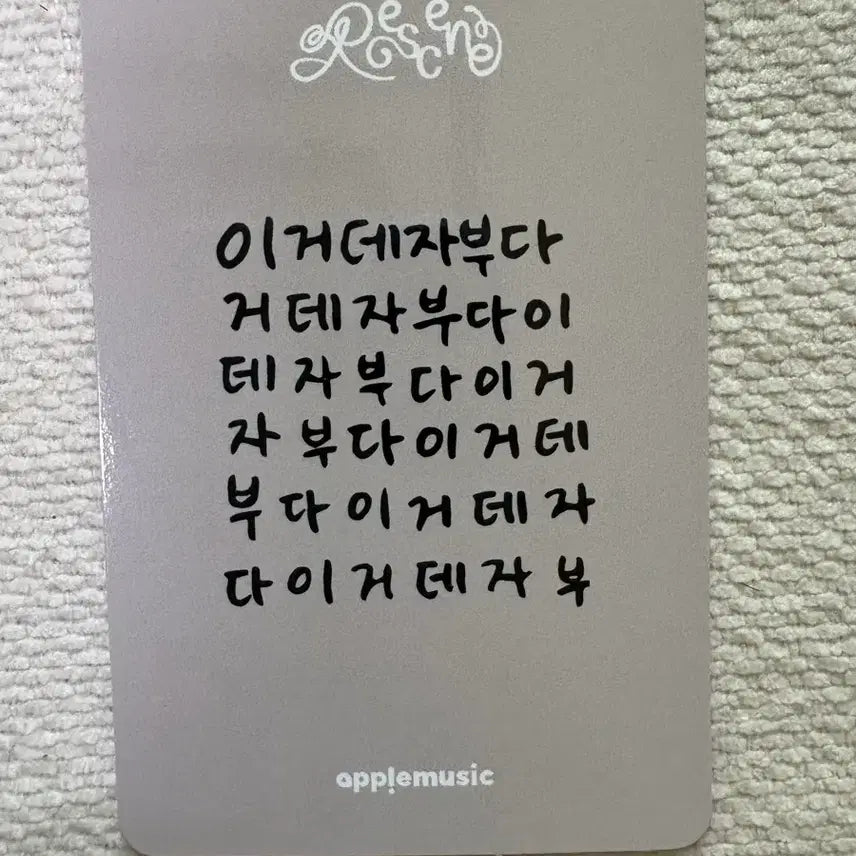 Rescene
이거데자부다
거데자부다이
데자부다이거
자부다이거데
부다이거데자
다이거데자부
applemusic